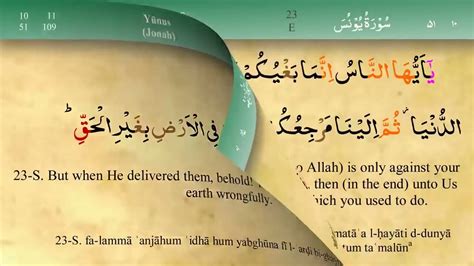 10 11 Yūnus 23 سُوْرَةُ يُوْنُسَ ٥١ ١٠
51 109 (Jonah) E
يٰۤاَيُّهَا النَّاسُ اِنَّمَا بَغْيُكُمْ
فِي الْاَرْضِ بِغَيْرِ الْحَقِّ ؕ
الدُّنْيَا ۫ ثُمَّ اِلَيْنَا مَرْجِعُكُ
23-S. But when He delivered them, behold!
earth wrongfully.
o Allah) is only against your
, then (in the end) unto Us
hich you used to do.
23-S. fa-lammā ʾanjāhum ʾidhā hum yabghūna fī l-ʾarḍi bi-gha
matāʿa l-ḥayāti d-dunyā
tum taʿmalūna